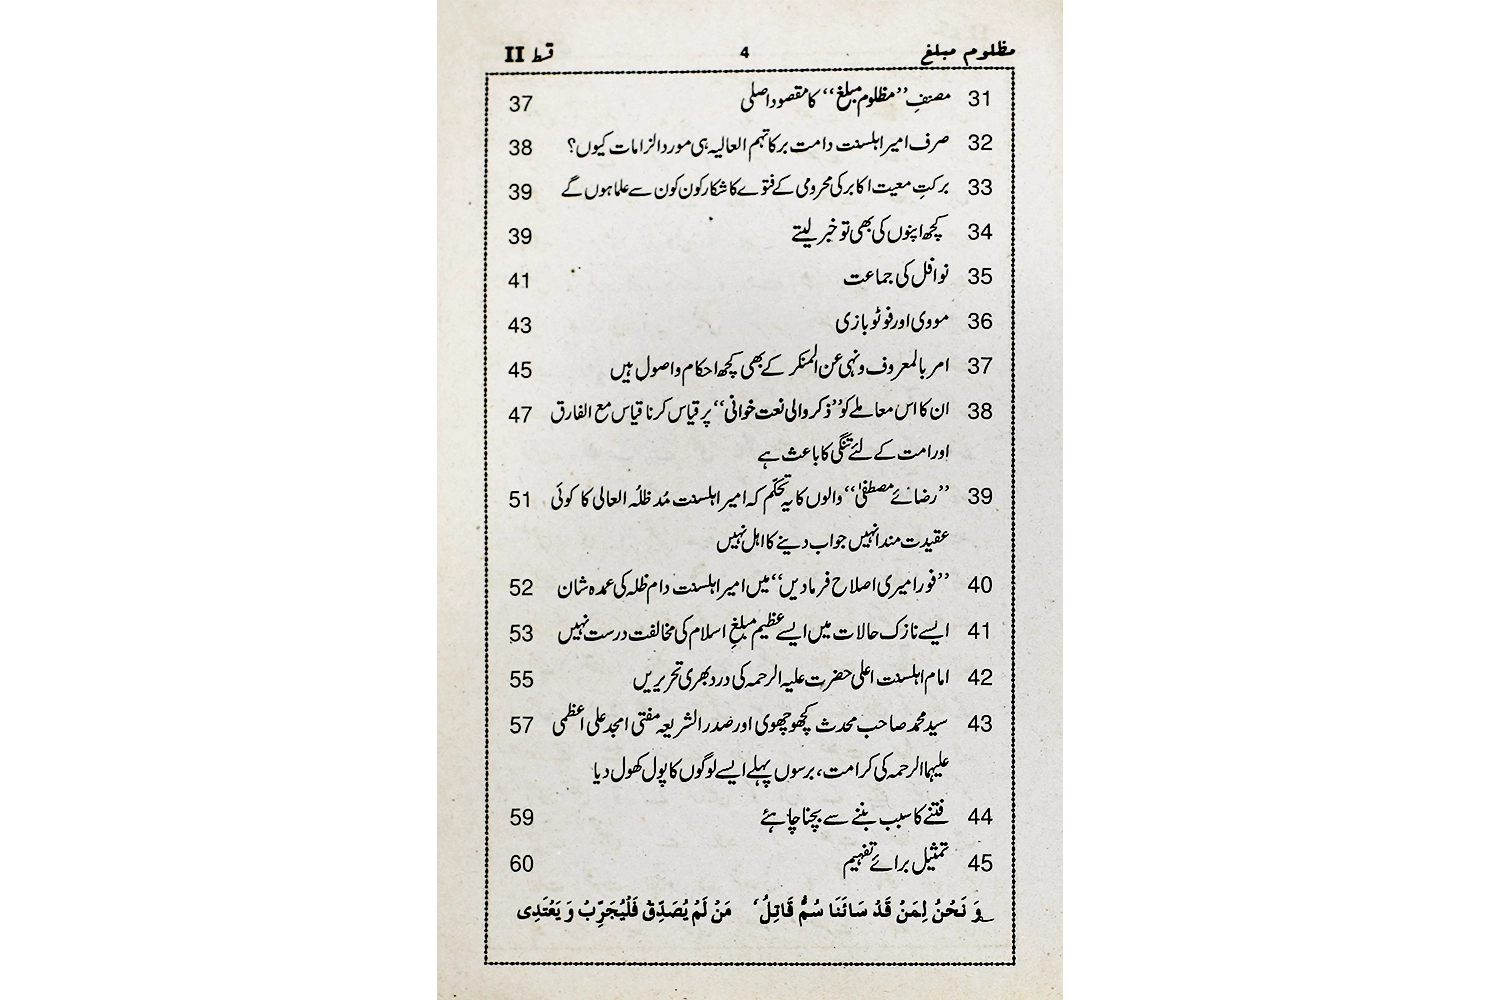 مظلوم مبلغ 4 قسط II
31 مصنفِ ”مظلوم مبلغ“ کا مقصود اصلی 37
32 صرف امیر اہلسنت دامت برکاتہم العالیہ ہی مورد الزامات کیوں؟ 38
33 برکتِ معیت اکابر کی محرومی کے فتوے کا شکار کون کون سے علما ہوں گے 39
34 کچھ اپنوں کی بھی تو خبر لیتے 39
35 نوافل کی جماعت 41
36 مووی اور فوٹو بازی 43
37 امر بالمعروف ونہی عن المنکر کے بھی کچھ احکام واصول ہیں 45
38 ان کا اس معاملے کو ”ذکر والی نعت خوانی“ پر قیاس کرنا قیاس مع الفارق 47
اور امت کے لئے تنگی کا باعث ہے
39 ”رضائے مصطفیٰ“ والوں کا یہ تحکّم کہ امیر اہلسنت مُد ظلُہ العالی کا کوئی 51
عقیدت مند انہیں جواب دینے کا اہل نہیں
40 ”فورا میری اصلاح فرمادیں“ میں امیر اہلسنت دام ظلہ کی عمدہ شان 52
41 ایسے نازک حالات میں ایسے عظیم مبلغِ اسلام کی مخالفت درست نہیں 53
42 امام اہلسنت اعلی حضرت علیہ الرحمہ کی درد بھری تحریریں 55
43 سید محمد صاحب محدث کچھوچھوی اور صدر الشریعہ مفتی امجد علی اعظمی 57
علیہما الرحمہ کی کرامت، برسوں پہلے ایسے لوگوں کا پول کھول دیا
44 فتنے کا سبب بننے سے بچنا چاہئے 59
45 تمثیل برائے تفہیم 60
وَ نَحْنُ لِمَنْ قَدْ سَائَنَا سُمٌّ قَاتِلٌ ؑ مَنْ لَمْ يُصَدِّقْ فَلْيُجَرِّبْ وَ يَعْتَدِی